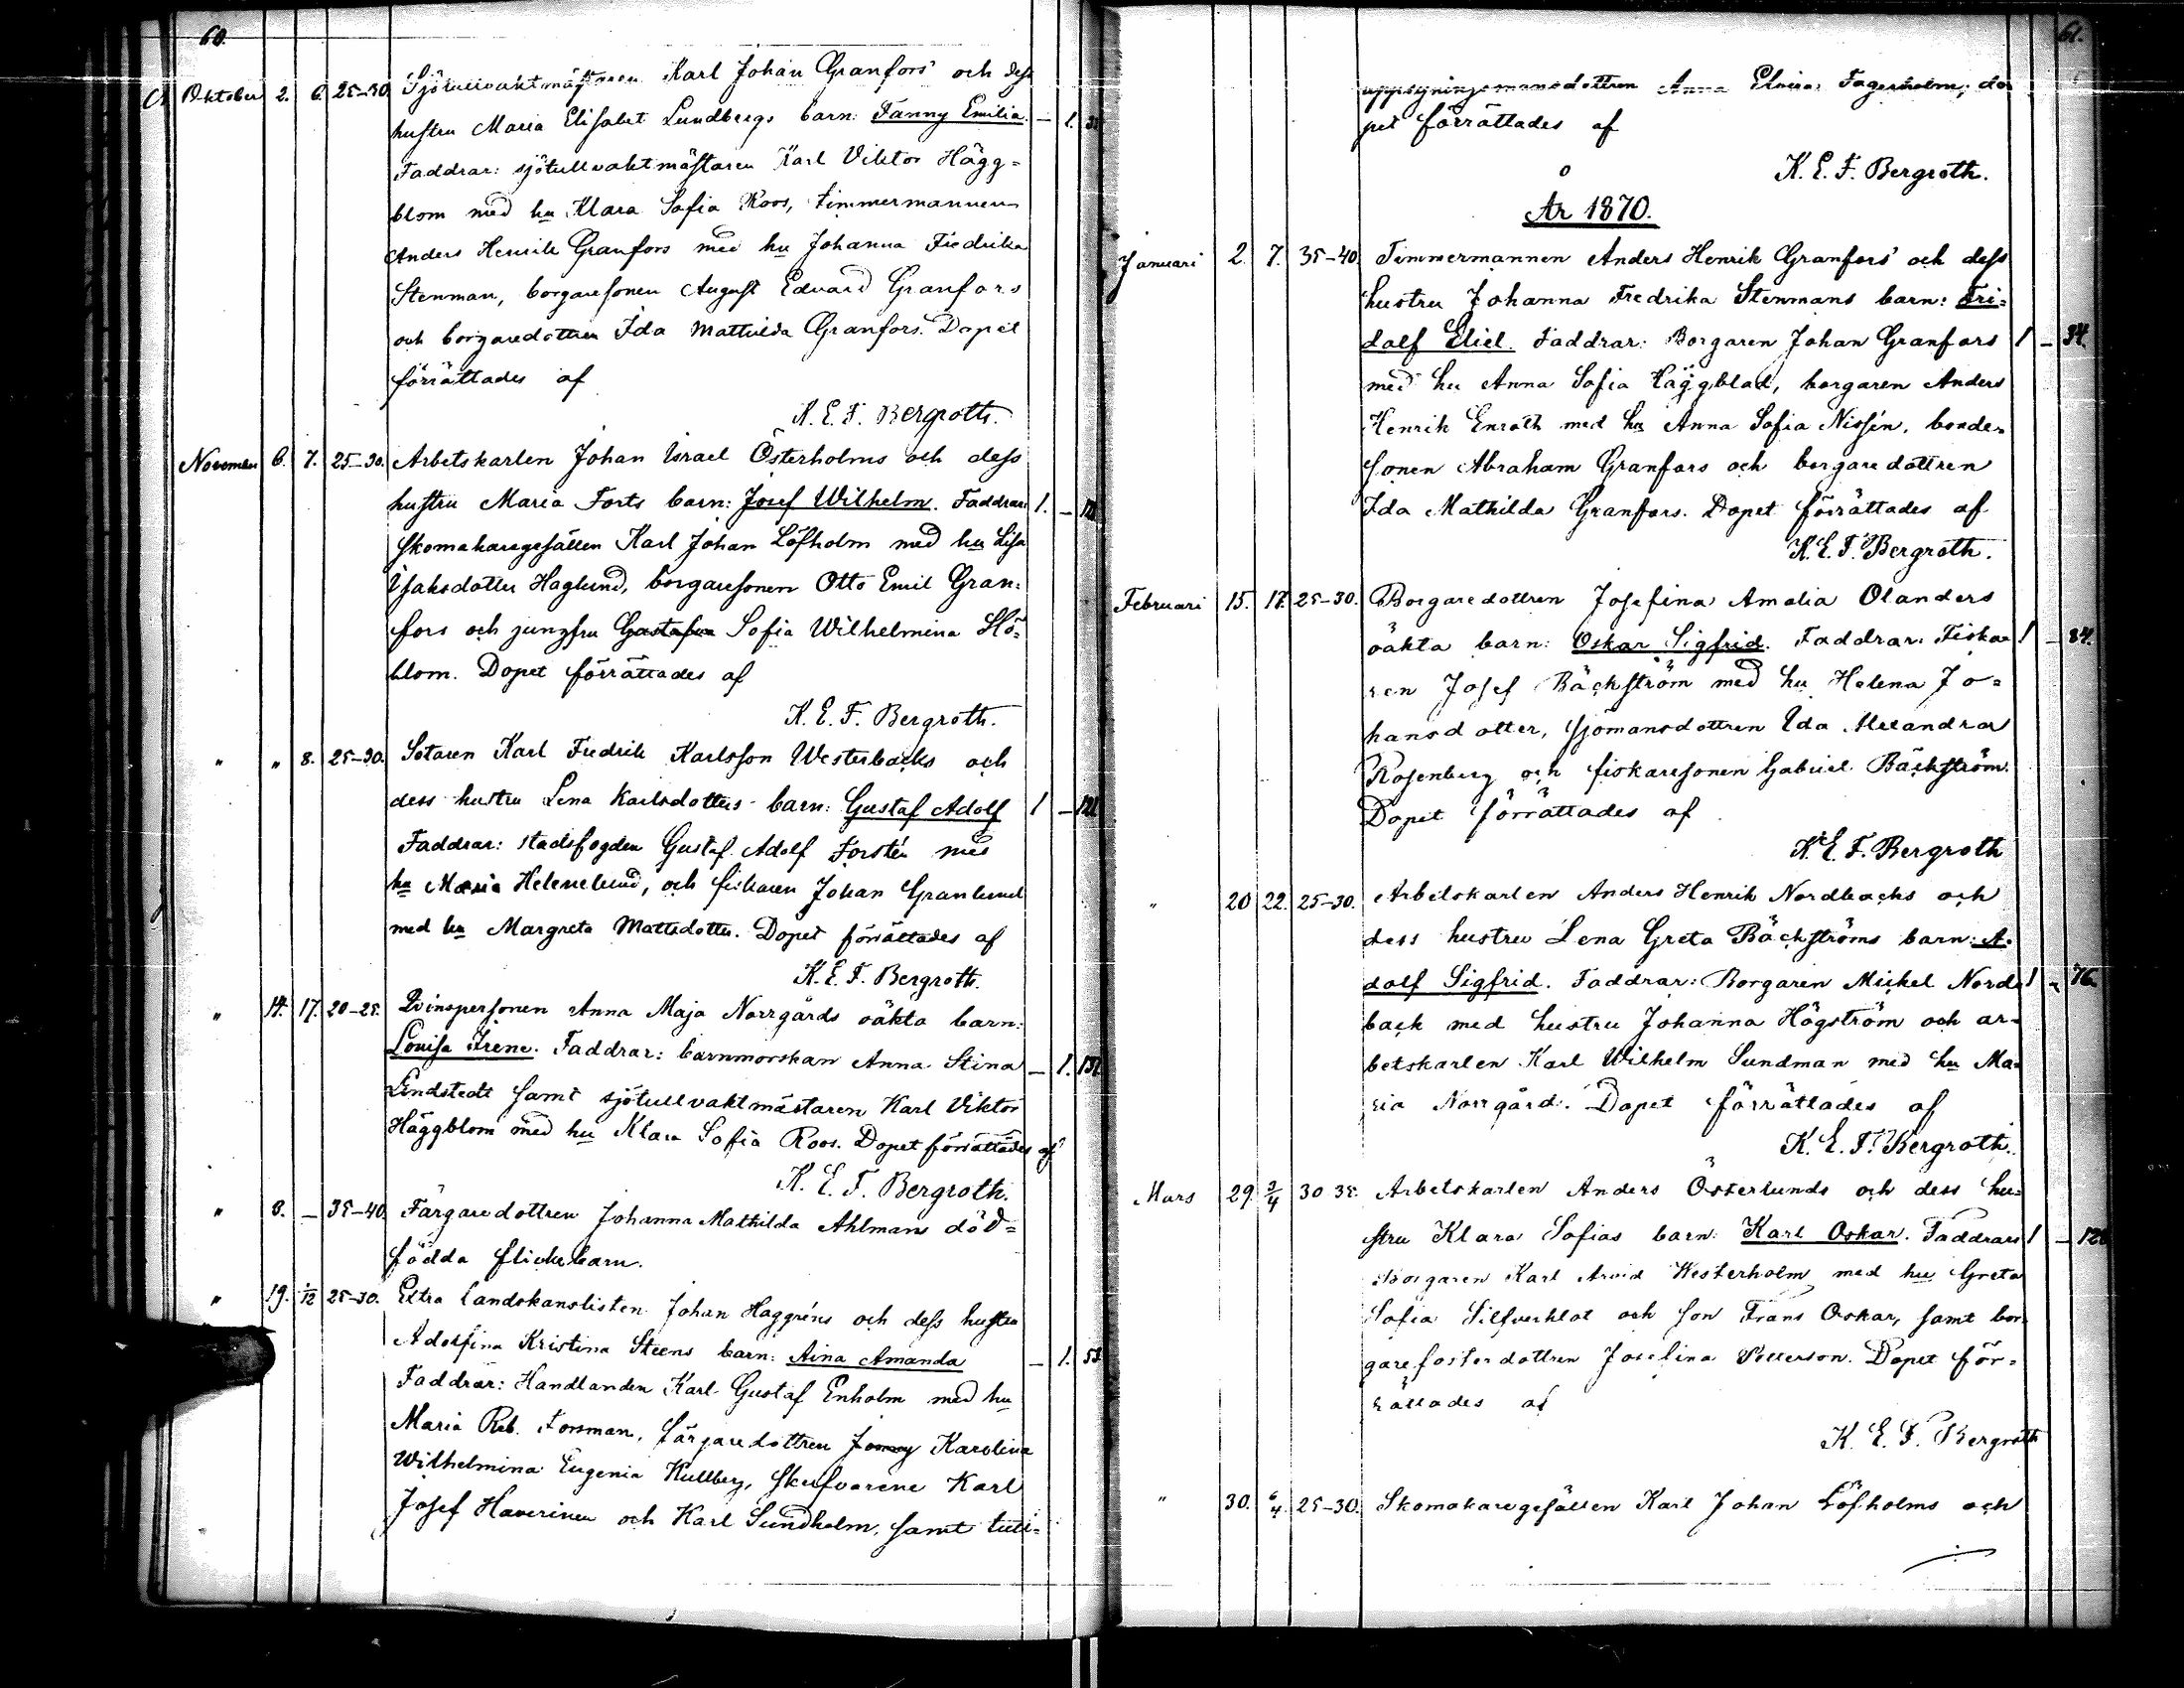 60.
Oktober 2. 6. 25-30. Sjötullvaktmästaren Karl Johan Granfors och dess
hustru Maria Elisabet Lundbergs barn: Fanny Emilia. — 1.
Faddrar: sjötullvaktmästaren Karl Viktor Hägg=
blom med hu Klara Sofia Roos, timmermannen
Anders Henrik Granfors med hu Johanna Fredrika
Stenman, borgaresonen August Edvard Granfors
och borgaredottren Ida Mathilda Granfors. Dopet
förrättades af
K. E. F. Bergroth.
November 6. 7. 25-30. Arbetskarlen Johan Israel Österholms och dess
hustru Maria Forts barn: Josef Wilhelm. Faddrar: 1. —
skomakaregesällen Karl Johan Löfholm med hu Lisa
Isaksdotter Haglund, borgaresonen Otto Emil Gran=
fors och jungfru Gustafva Sofia Wilhelmina Slö=
blom. Dopet förrättades af
K. E. F. Bergroth.
" " 8. 25-30. Sotaren Karl Fredrik Karlsson Westerbacks och
dess hustru Lena Karlsdotters barn: Gustaf Adolf 1 — 121
Faddrar: stadsfogden Gustaf Adolf Forstén med
hu Maria Helenelund, och fiskaren Johan Granlund
med hu Margreta Mattsdotter. Dopet förrättades af
K. E. F. Bergroth.
" 14. 17. 20-25. Qvinspersonen Anna Maja Norrgårds oäkta barn:
Louisa Irene. Faddrar: barnmorskan Anna Stina — 1. 151
Lindstedt samt sjötullvaktmästaren Karl Viktor
Häggblom med hu Klara Sofia Roos. Dopet förrättades af
K. E. F. Bergroth.
" 8. — 35-40. Färgaredottren Johanna Mathilda Ahlmans död=
födda flickebarn.
" 19. 1/12 25-30. Extra landskanslisten Johan Haggréns och dess hustru
Adolfina Kristina Steens barn: Aina Amanda — 1. 53.
Faddrar: Handlanden Karl Gustaf Enholm med hu
Maria Reb. Forsman, färgaredottren Karolina
Wilhelmina Eugenia Kullberg, skrifvarene Karl
Josef Haverinen och Karl Sundholm, samt tull=
61.
uppsyningsmansdottren Anna Elvira Fagerholm; do=
pet förrättades af
K. E. F. Bergroth.
År 1870.
Januari 2. 7. 35-40. Timmermannen Anders Henrik Granfors' och dess
hustru Johanna Fredrika Stenmans barn: Fri=
dolf Eliel. Faddrar: Borgaren Johan Granfors 1 — 34.
med hu Anna Sofia Häggblad, borgaren Anders
Henrik Enroth med hu Anna Sofia Nissén, bonde=
sonen Abraham Granfors och borgaredottren
Ida Mathilda Granfors. Dopet förrättades af
K. E. F. Bergroth.
Februari 15. 17. 25-30. Borgaredottren Josefina Amalia Olanders
oäkta barn: Oskar Sigfrid. Faddrar: Fiska= 1 — 84.
ren Josef Bäckström med hu Helena Jo=
hansdotter, sjömansdottren Ida Alexandra
Rosenberg och fiskaresonen Gabriel Bäckström.
Dopet förrättades af
K. E. F. Bergroth
" 20 22. 25-30. Arbetskarlen Anders Henrik Nordbacks och
dess hustru Lena Greta Bäckströms barn: A=
dolf Sigfrid. Faddrar: Borgaren Mickel Nord= 1 — 76.
back med hustru Johanna Högström och ar=
betskarlen Karl Wilhelm Sundman med hu Ma=
ria Norrgård. Dopet förrättades af
K. E. F. Bergroth.
Mars 29. 3/4 30 35. Arbetskarlen Anders Österlunds och dess hu=
stru Klara Sofias barn: Karl Oskar. Faddrar: 1 —
Borgaren Karl Arvid Westerholm med hu Greta
Sofia Silfverklot och son Frans Oskar, samt bor=
garefosterdottren Josefina Petterson. Dopet för=
rättades af
K. E. F. Bergroth
" 30. 6/4. 25-30. Skomakaregesällen Karl Johan Löfholms och